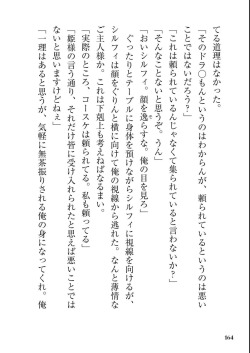 てる道理はなかった。
「そのドラ○もんというのはわからんが、頼られているというのは悪い
ことではないだろう？」
「これは頼られているんじゃなくて集られていると言わないか？」
「そんなことないと思うぞ。うん」
「おいシルフィ。顔を逸らすな。俺の目を見ろ」
ぐったりとテーブルに身体を預けながらシルフィに視線を向けるが、
シルフィは顔をぐりんと横に向けて俺の視線から逃れた。なんと薄情な
ご主人様か。これは下剋上も考えねばなるまい。
「実際のところ、コースケは頼られてる。私も頼ってる」
「姫様の言う通り、それだけ皆に受け入れられたと思えば悪いことでは
ないと思いますけどねぇ」
「一理はあると思うが、気軽に無茶振りされる俺の身になってくれ。俺
164